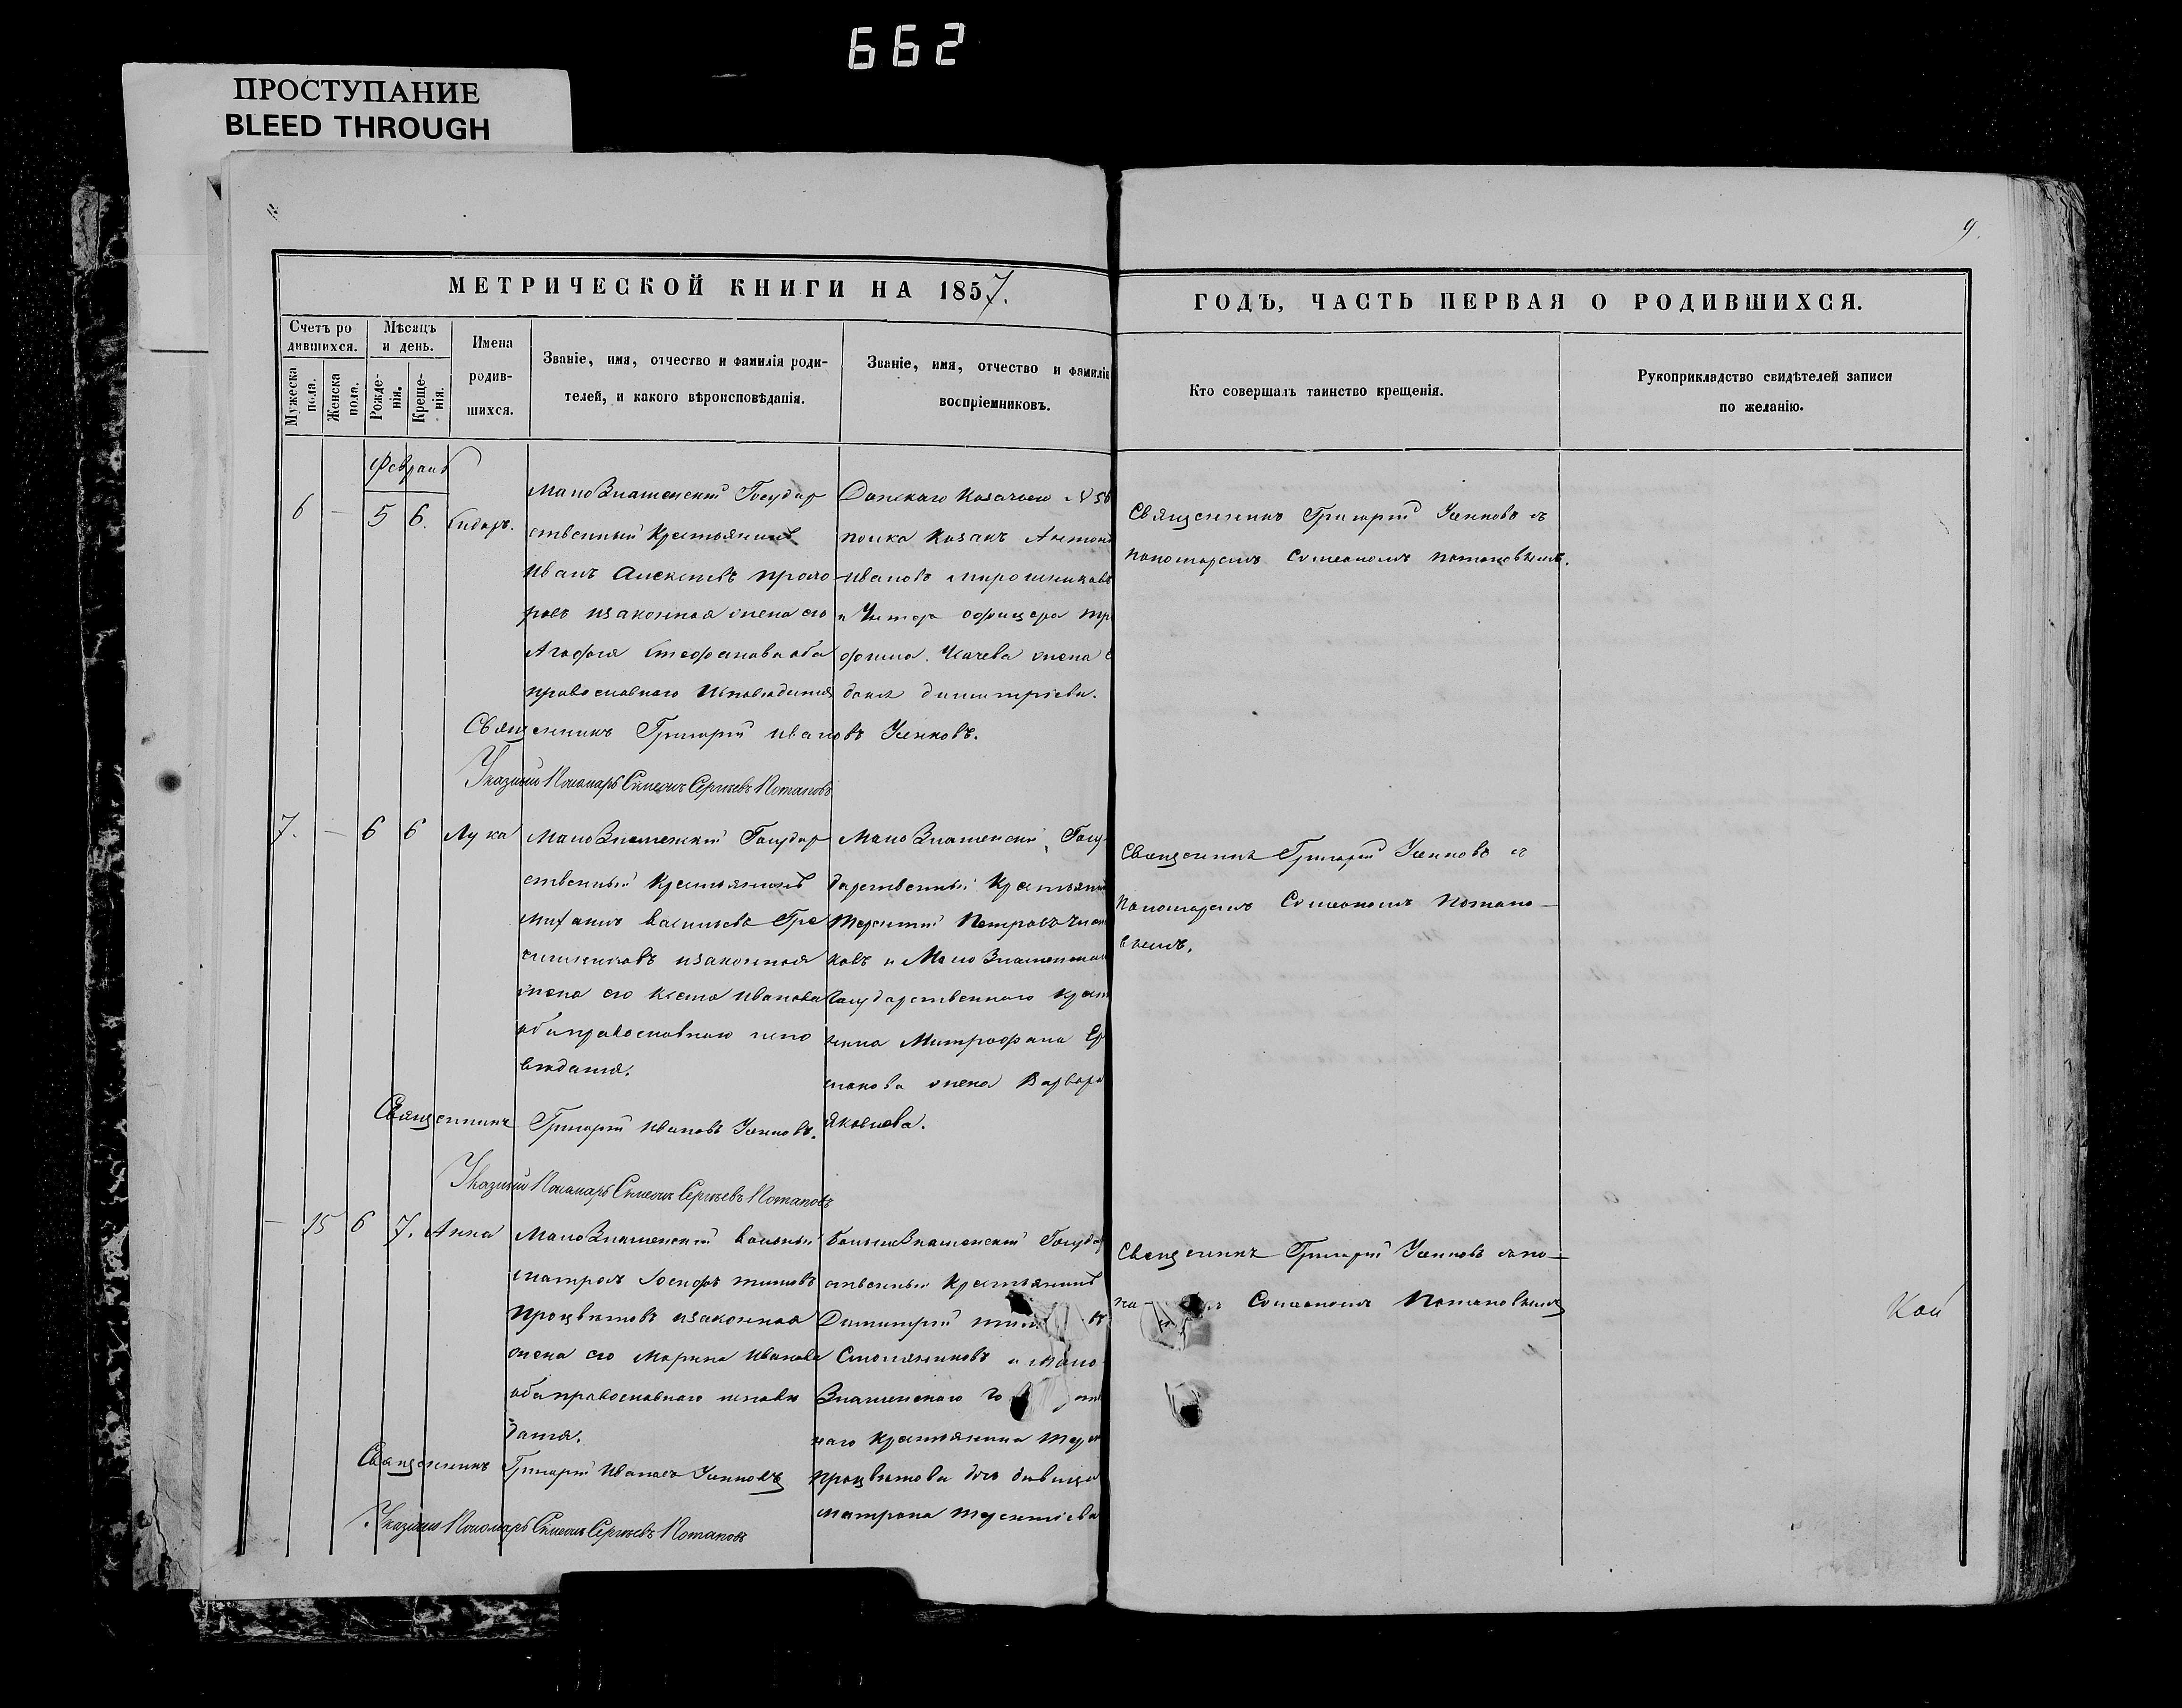 662
ПРОСТУПАНИЕ
BLEED THROUGH
9.
МЕТРИЧЕСКОЙ КНИГИ НА 1857.
ГОДЪ, ЧАСТЬ ПЕРВАЯ О РОДИВШИХСЯ.
Счетъ ро
дившихся.
Мужеска
пола.
Женска
пола.
Мѣсяцъ
и день.
Рожде-
нія.
Креще-
нія.
Имена
родив-
шихся.
Званіе, имя, отчество и фамилія роди-
телей, и какого вѣроисповѣданія.
Званіе, имя, отчество и фамилія
воспріемниковъ.
Кто совершалъ таинство крещенія.
Рукоприкладство свидѣтелей записи
по желанію.
Февраль
6 — 5 6. Сидоръ.
МалоЗнаменскій Государ
ственный Крестьянинъ
Иванъ Алексѣевъ прохо
ровъ изаконная жена его
Агафія Стефанова оба
православнаго Исповѣданія
Донскаго Казачьего № 56
полка Казакъ Антонъ
Ивановъ мирошниковъ
и Унтеръ офицера Тро
фима Ткачева жена
димитріева.
Священникъ Григорій Усенковъ съ
пономаремъ Симеономъ потаповымъ.
Священникъ Григорій Ивановъ Усенковъ.
Указный Пономарь Симеонъ Сергѣевъ Потаповъ
7. — 6 6 Лука
МалоЗнаменскій Государ
ственный Крестьянинъ
Михаилъ Васильевъ Гре
изаконная
жена его Ксенія Иванова
оба православнаго испо
вѣданія.
МалоЗнаменскій Госу-
дарственный Крестьянинъ
Терентій Петровъ
ковъ и МалоЗнаменскаго
Государственнаго Кресть
янина Митрофана Ер
макова жена Варвара
Яковлева.
Священникъ Григорій Усенковъ съ
Пономаремъ Симеономъ Потапо—
вымъ.
Священникъ Григорій Ивановъ Усенковъ.
Указный Пономарь Симеонъ Сергѣевъ Потаповъ
— 15 6 7. Анна
МалоЗнаменскій вольный
матрозъ Іосифъ титовъ
Процвѣтовъ изаконная
жена его Марина Иванова
оба православнаго исповѣ
данія.
БольшеЗнаменскій Государ
ственный Крестьянинъ
Димитрій
Столяниковъ и Мало
Знаменскаго
наго Крестьянина
процвѣтова дочь дѣвица
матрона терентіева
Священникъ Григорій Усенковъ съ по—
Симеономъ Потаповымъ
Кои
Священникъ Григорій Ивановъ Усенковъ
Указный Пономарь Симеонъ Сергѣевъ Потаповъ